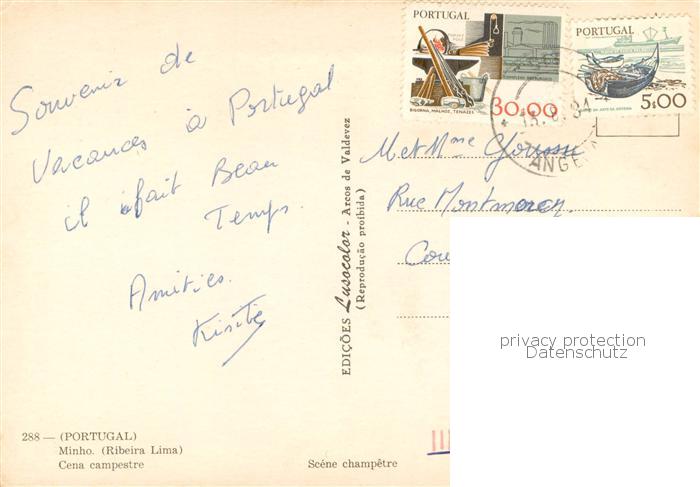 Souvenir de
Vacances à Portugal
il fait Beau
Temps.
Amitiés.
288 — (PORTUGAL)
Minho. (Ribeira Lima)
Cena campestre
Scéne champêtre
EDIÇÕES Lusocolor - Arcos de Valdevez
(Reprodução proibida)
PORTUGAL
BIGORNA, MALHOS, TENAZES
30$00
PORTUGAL
5$00
M et Mme
Rue Montmorency
privacy protection
Datenschutz